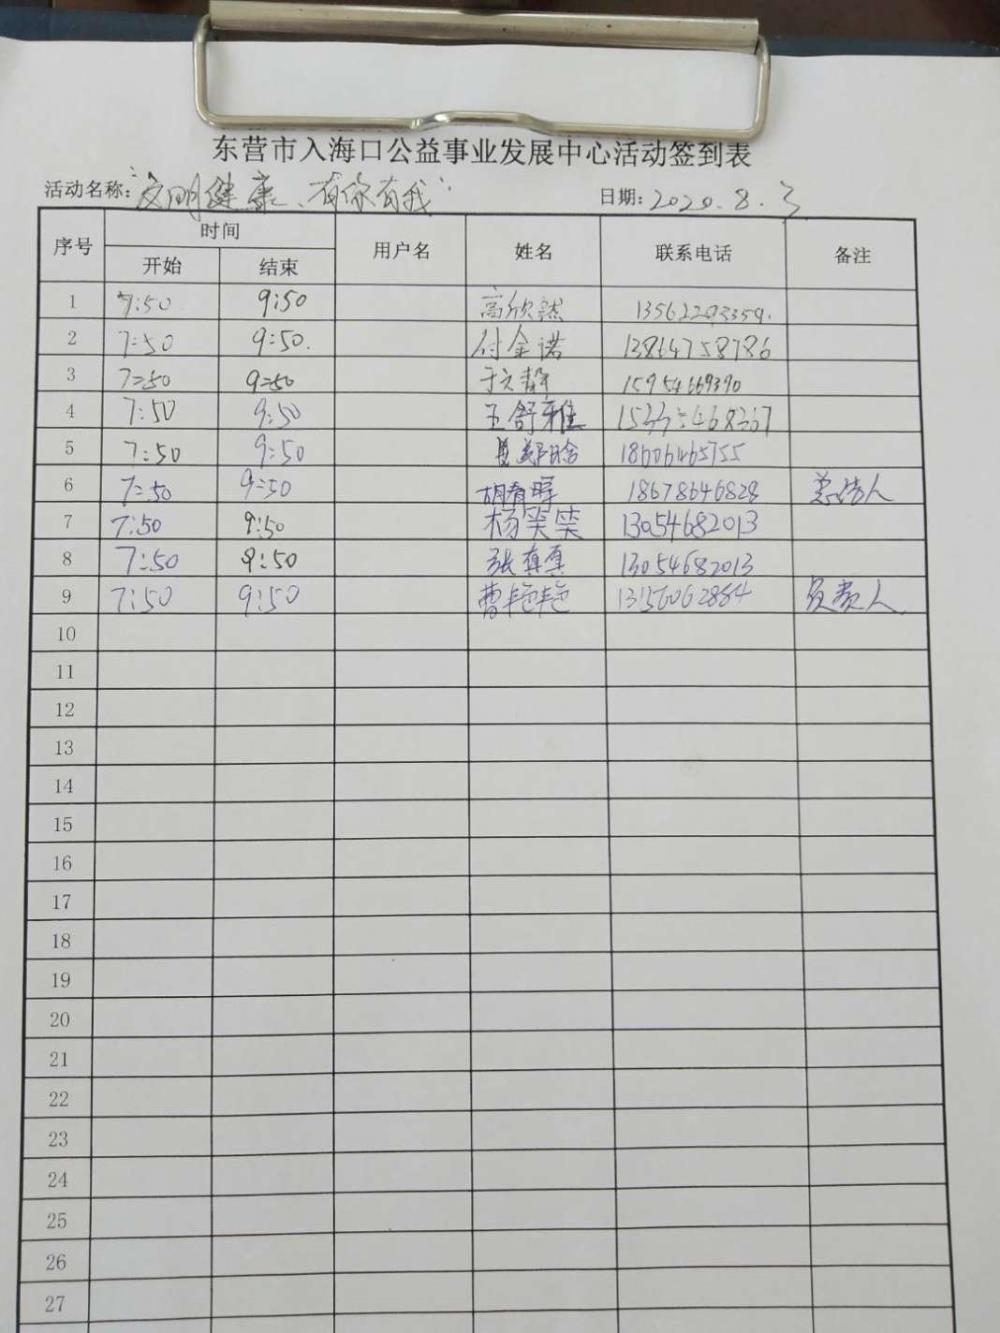 东营市入海口公益事业发展中心活动签到表
活动名称:"文明健康、有你有我" 日期:2020.8.3
序号 时间 用户名 姓名 联系电话 备注
开始 结束
1 7:50 9:50 高欣然
2 7:50 9:50. 付金诺 13864758786
3 7:50 9:50 于文静 15954669390
4 7:50 9:50 王舒雅
5 7:50 9:50 18606465755
6 7:50 9:50 18678646828 总结人
7 7:50 9:50 杨笑笑 13054682013
8 7:50 9:50 张真真 13054682013
9 7:50 9:50 曹艳艳 负责人
10
11
12
13
14
15
16
17
18
19
20
21
22
23
24
25
26
27